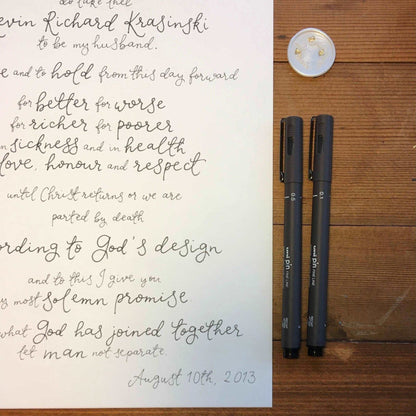 do take thee
Kevin Richard Krasinski
to be my husband.
and to hold from this day forward
for better for worse
for richer for poorer
in sickness and in health
love, honour and respect
until Christ returns or we are
parted by death
according to God's design
and to this I give you
my most solemn promise
what God has joined together
let man not separate
August 10th, 2013
0.5
uni pin fine line
0.1
uni pin fine line